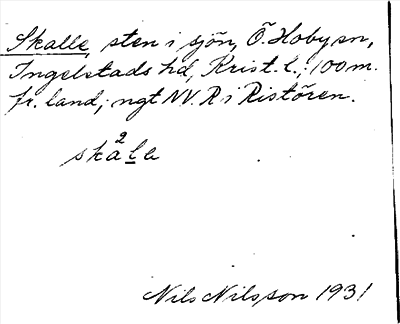 Skalle, sten i sjön, Ö. Hoby sn,
Ingelstads hd, Krist. l.; 100 m.
fr. land; ngt NV. R i Ristören.
ska²la
Nils Nilsson 1931